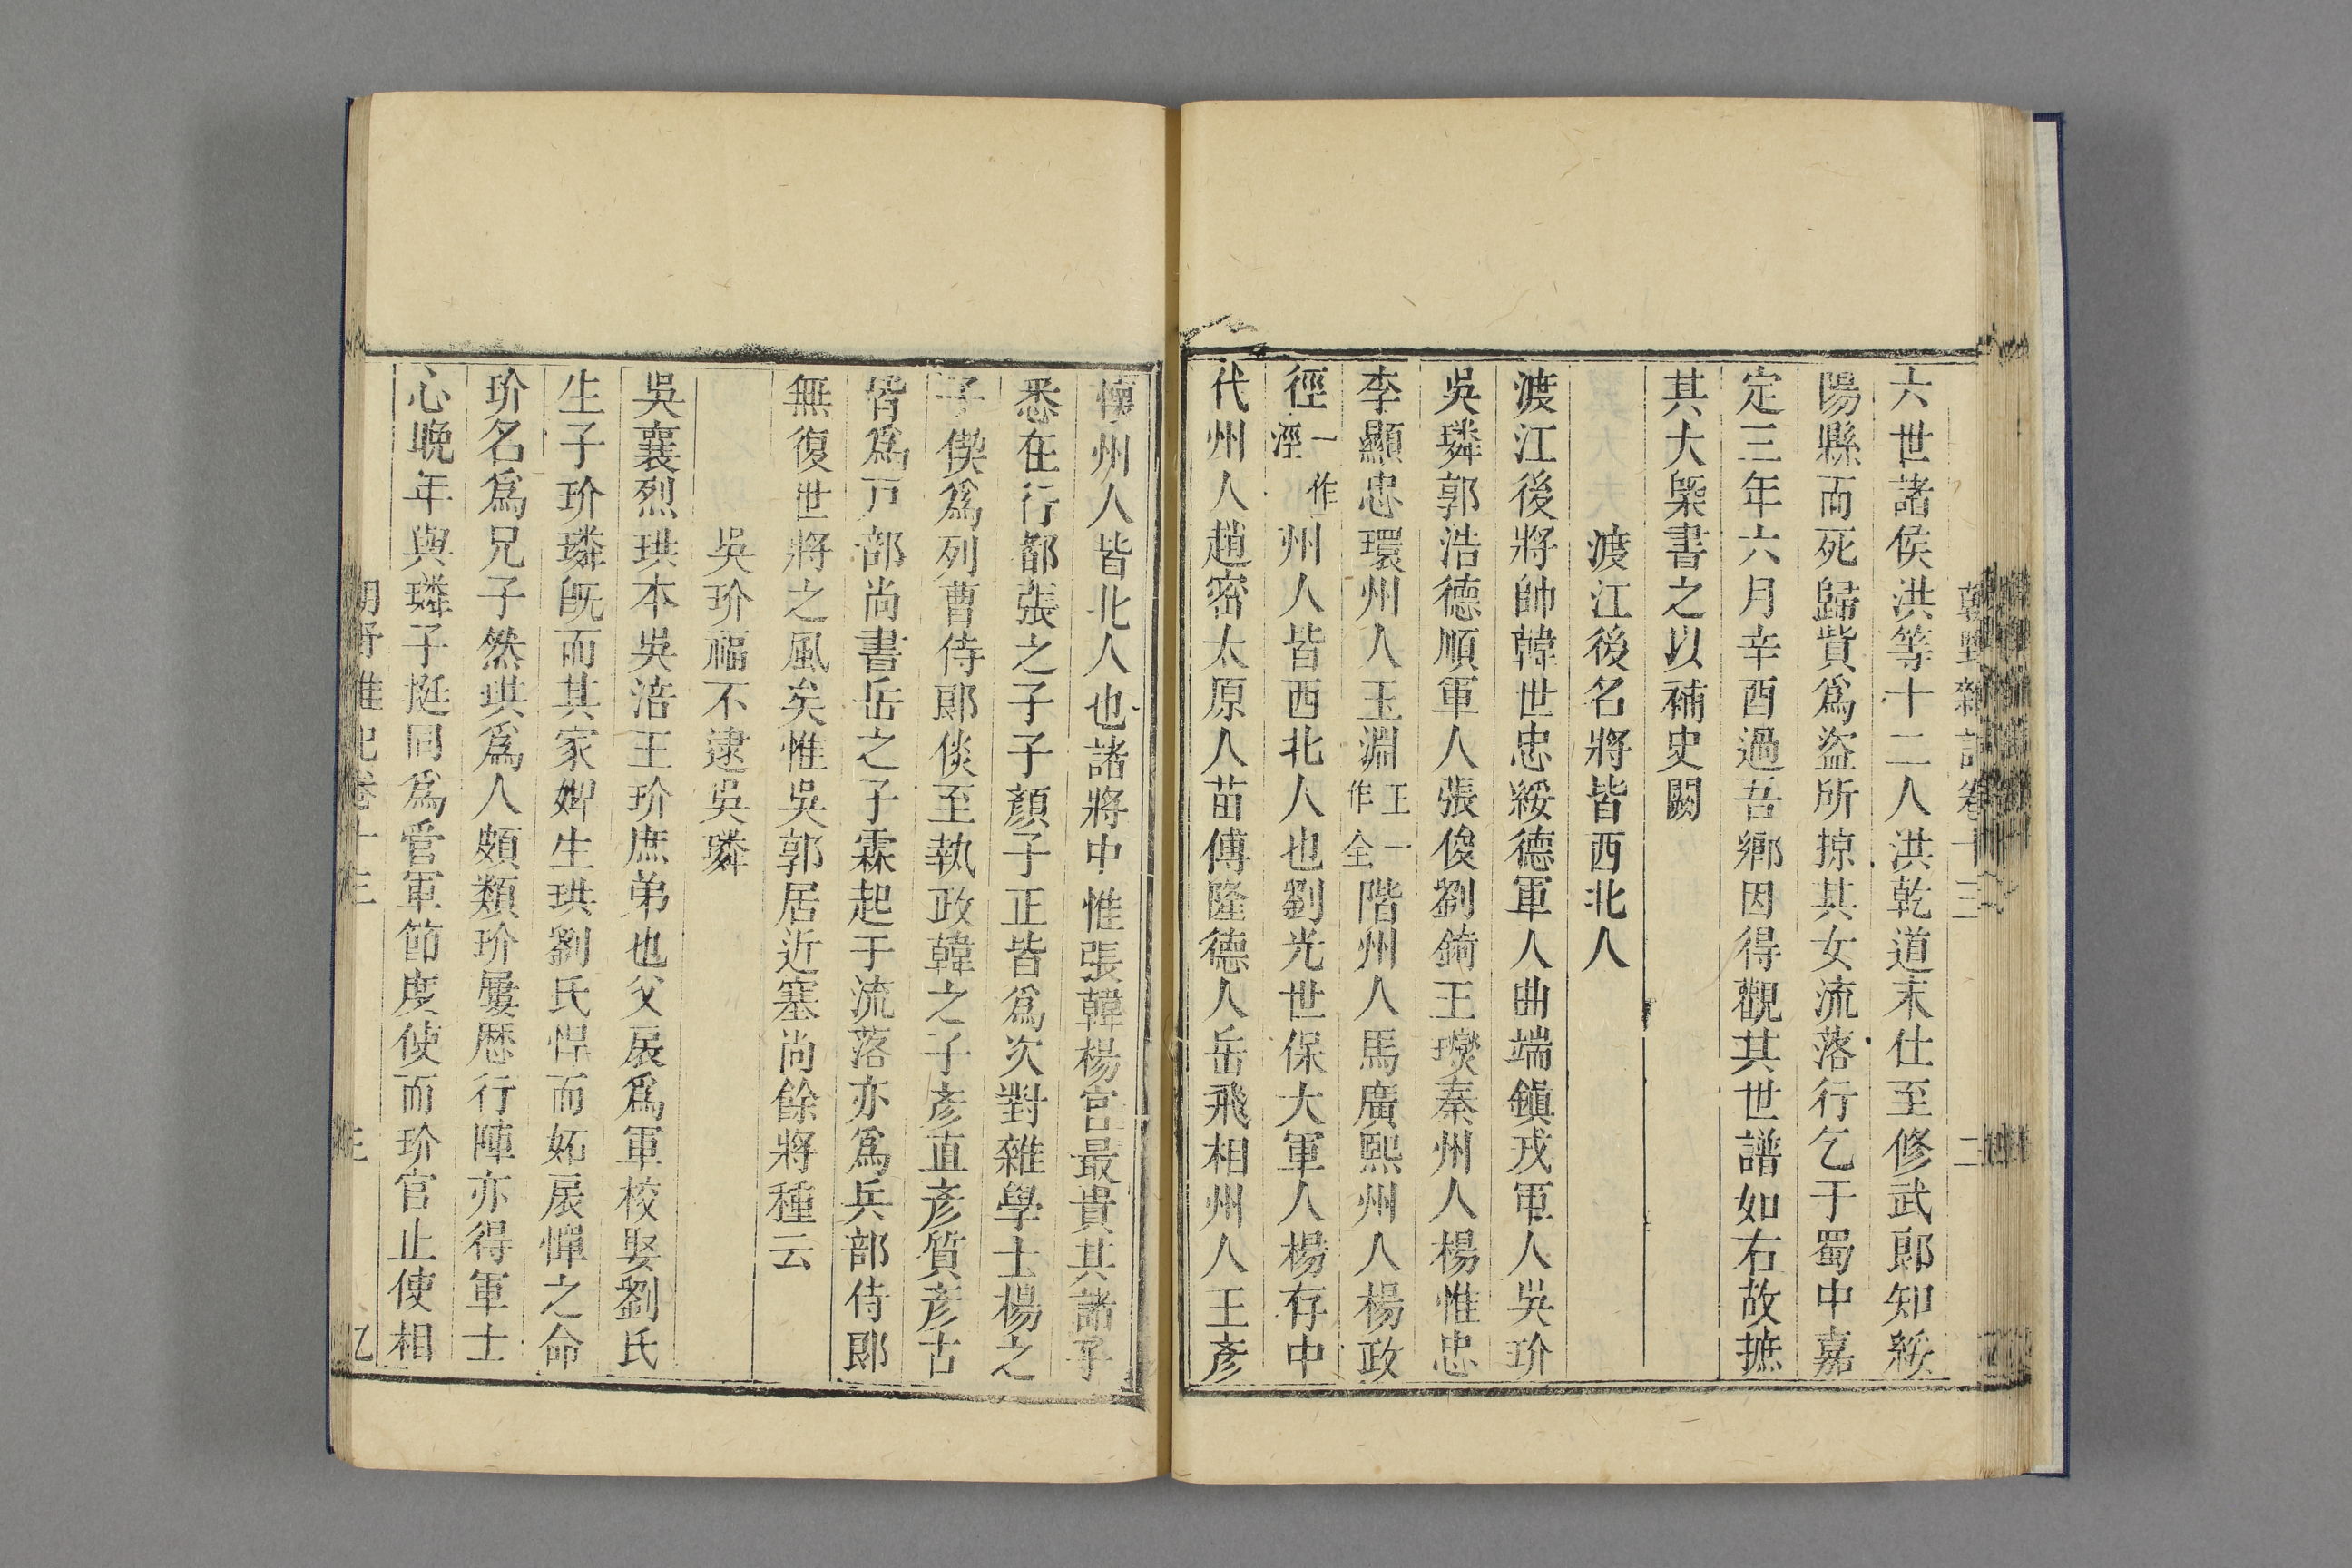 朝野雜記卷十三 二
六世諸侯洪等十二人洪乾道末仕至修武郎知綏
陽縣而死歸貲爲盜所掠其女流落行乞于蜀中嘉
定三年六月辛酉過吾鄉因得觀其世譜如右故摭
其大槩書之以補史闕
渡江後名將皆西北人
渡江後將帥韓世忠綏德軍人曲端鎭戎軍人吳玠
吳璘郭浩德順軍人張俊劉錡王𤫉秦州人楊惟忠
李顯忠環州人王淵王一作全階州人馬廣熙州人楊政
徑一作涇州人皆西北人也劉光世保大軍人楊存中
代州人趙密太原人苗傅隆德人岳飛相州人王彥
懷州人皆北人也諸將中惟張韓楊官最貴其諸子
悉在行都張之子子顏子正皆爲次對雜學士楊之
子偰爲列曹侍郎倓至執政韓之子彥直彥質彥古
皆爲戸部尚書岳之子霖起于流落亦爲兵部侍郎
無復世將之風矣惟吳郭居近塞尚餘將種云
吳玠福不逮吳璘
吳襄烈珙本吳涪王玠庶弟也父扆爲軍校娶劉氏
生子玠璘旣而其家婢生珙劉氏悍而妬扆憚之命
玠名爲兄子然珙爲人頗類玠屢歷行陣亦得軍士
心晚年與璘子挺同爲管軍節度使而玠官止使相